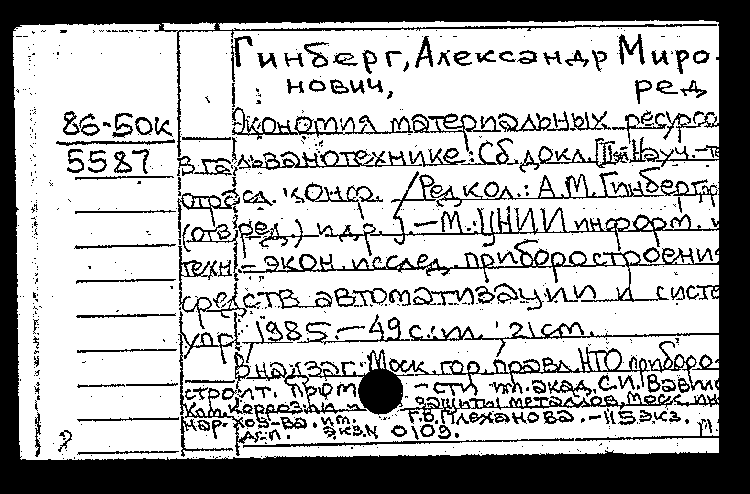 Гинберг, Александр Миро-
нович, ред
86-50к
5587
Экономия материальных ресурсо
в гальванотехнике: Сб. докл. Науч.-т
отрасл. конф. / Редкол.: А.М. Гинберг
(отв. ред.) и др. ].-М.: ЦНИИ информ. и
техн.-экон. исслед. приборостроения
средств автоматизации и систе
упр., 1985.-49 с.: ил.; 21 см.
В надзаг.: Моск. гор. правл. НТО приборо-
строит. пром-сти им. акад. С.И. Вавило
Ком. коррозии и защиты металлов, Моск. ин
нар. хоз-ва им. Г.В. Плеханова.-115 экз.
экз.N 0109.